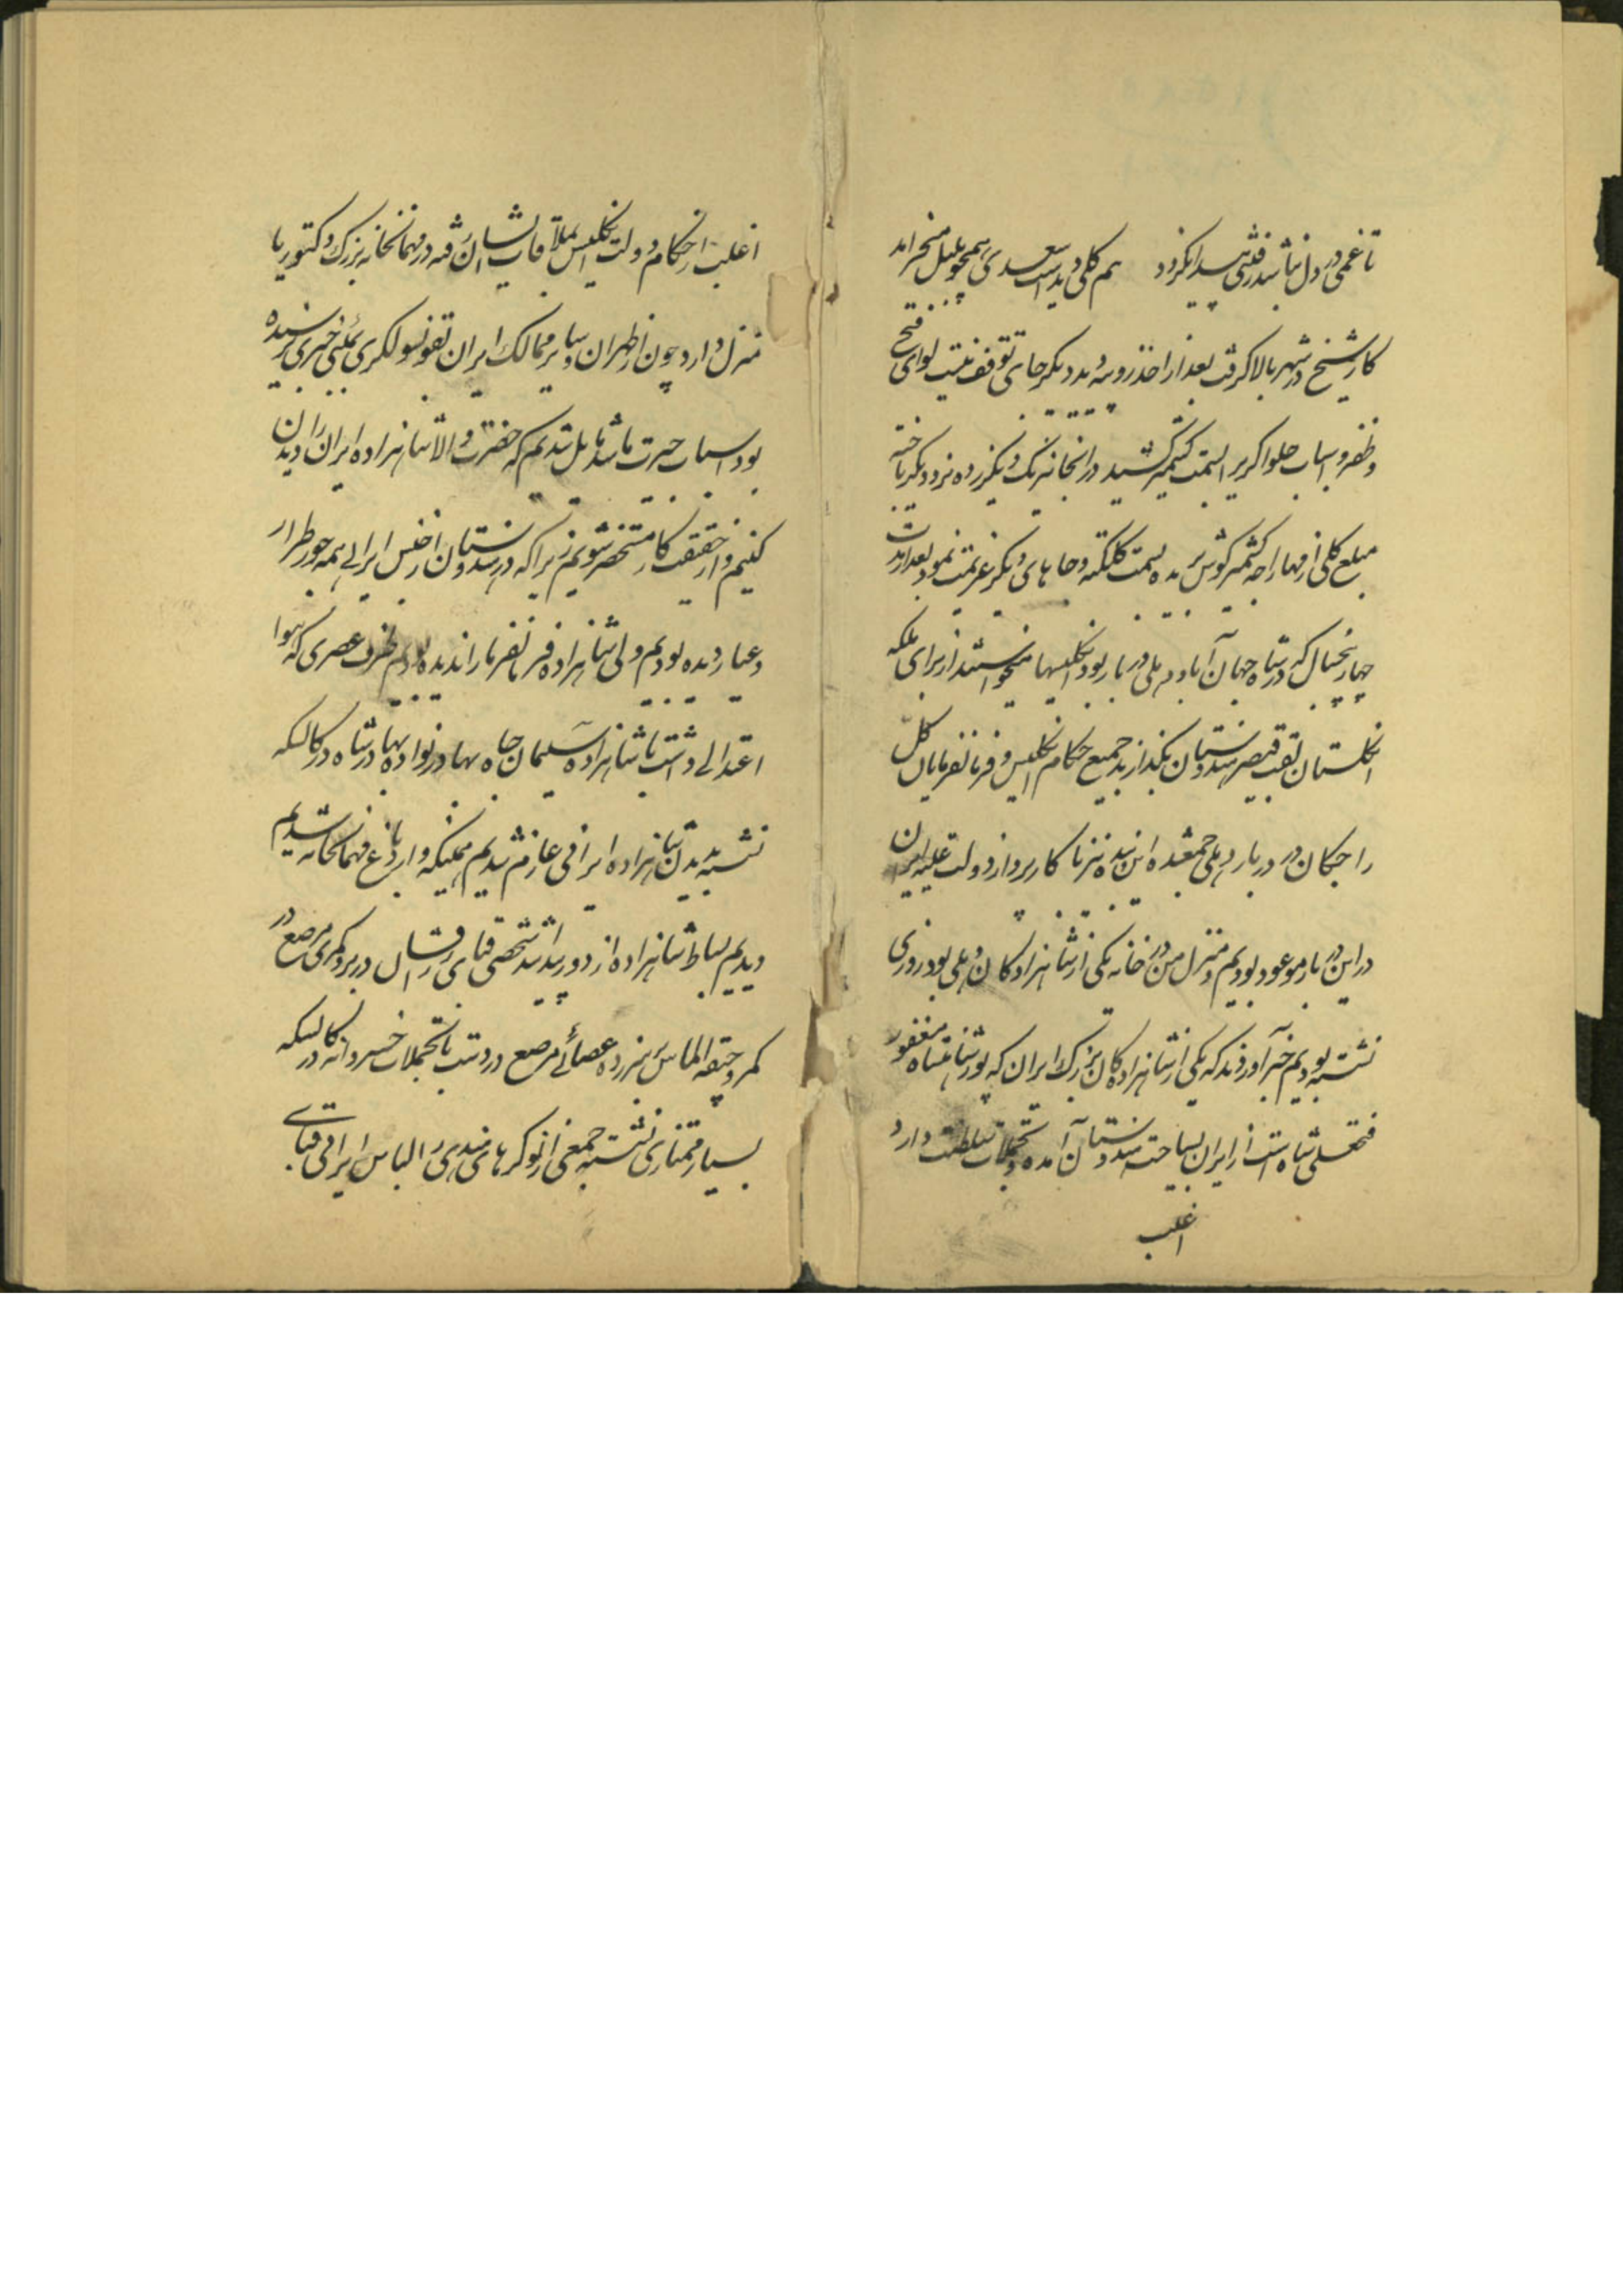 تا غمی در دل نباشد رفتی پیدا نگردد هم گلی دیدست سعدی همچو بلبل میخرامد
کار شیخ در شهر بالا گرفت بعد از اخذ روپیه دید دیگر جای توقف نیست لوای فتح
و ظفر و اسباب حلوا گریرا بسمت کشمیر کشید در آنجا نیرنگ دیگر زده نرد دیگر باخته
مبلغ کلی از مهاراجه کشمیر گوش بریده بسمت کلکته و جاهای دیگر عزیمت نمود بعد از مدت
چهار پنجسال که در شاه جهان آباد دهلی دربار بود انگلیسها میخواستند از برای ملکه
انگلستان لقب قیصر هندوستان بگذارند جمیع حکام انگلیس و فرمانفرمایان کل
راجگان در دربار دهلی جمع شده این بنده نیز با کارپرداز دولت علیه ایران
در این دربار موعود بودیم و منزل من در خانه یکی از شاهزادگان دهلی بود روزی
نشسته بودیم خبر آوردند که یکی از شاهزادگان بزرگ ایران که پور شاهنشاه مغفور
فتحعلی شاه است از ایران بسیاحت هندوستان آمده و تجملات سلطنت دارد
اغلب
اغلب از حکام دولت انگلیس بملاقات ایشان رفته در مهمانخانه بزرگ وکتوریا
منزل دارد چون از طهران و سایر ممالک ایران بقونسولگری بمبئی خبری نرسیده
بود اسباب حیرت ما شد مایل شدیم که حضرت والا شاهزاده ایران را دیدن
کنیم و از حقیقت کار مستحضر شویم زیرا که در هندوستان از جنس ایرانی همه جور طرار
و عیار دیده بودیم ولی شاهزاده فرمانفرما را ندیده بودیم طرف عصری که هوا
اعتدالی داشت با شاهزاده سلیمان جاه بهادر نواده بهادرشاه در کالسکه
نشسته بدیدن شاهزاده ایرانی عازم شدیم همینکه وارد باغ مهمانخانه شدیم
دیدیم بساط شاهزاده از دور پیدا شد شخصی قبای زرافشان در بر و کمری مرصع در
کمر و جیقه الماس بر سر زده عصائی مرصع در دست با تجملات خسروانه در کالسکه
بسیار ممتازی نشسته جمعی از نوکرهای هندی را لباس ایرانی قبای